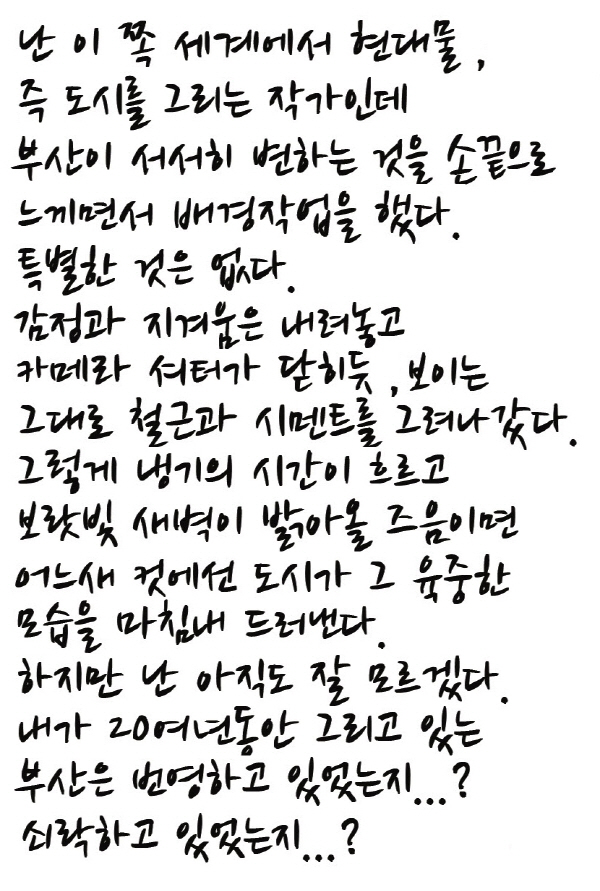 난 이 쪽 세계에서 현대물,
즉 도시를 그리는 작가인데
부산이 서서히 변하는 것을 손끝으로
느끼면서 배경작업을 했다.
특별한 것은 없다.
감정과 지겨움은 내려놓고
카메라 셔터가 닫히듯, 보이는
그대로 철근과 시멘트를 그려나갔다.
그렇게 냉기의 시간이 흐르고
보랏빛 새벽이 밝아올 즈음이면
어느새 컷에선 도시가 그 육중한
모습을 마침내 드러낸다.
하지만 난 아직도 잘 모르겠다.
내가 20여년동안 그리고 있는
부산은 번영하고 있었는지...?
쇠락하고 있었는지...?